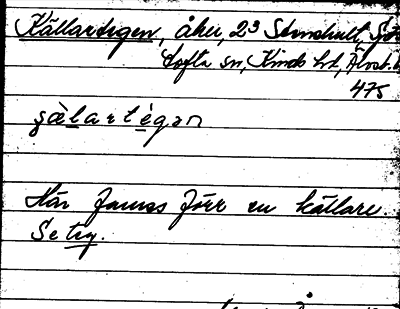 Källartegen, åker, 23 Stenshult,
Tofta sn, Kinds hd, Älvsb. l
475
Här fanns förr en källare.
Se teg.